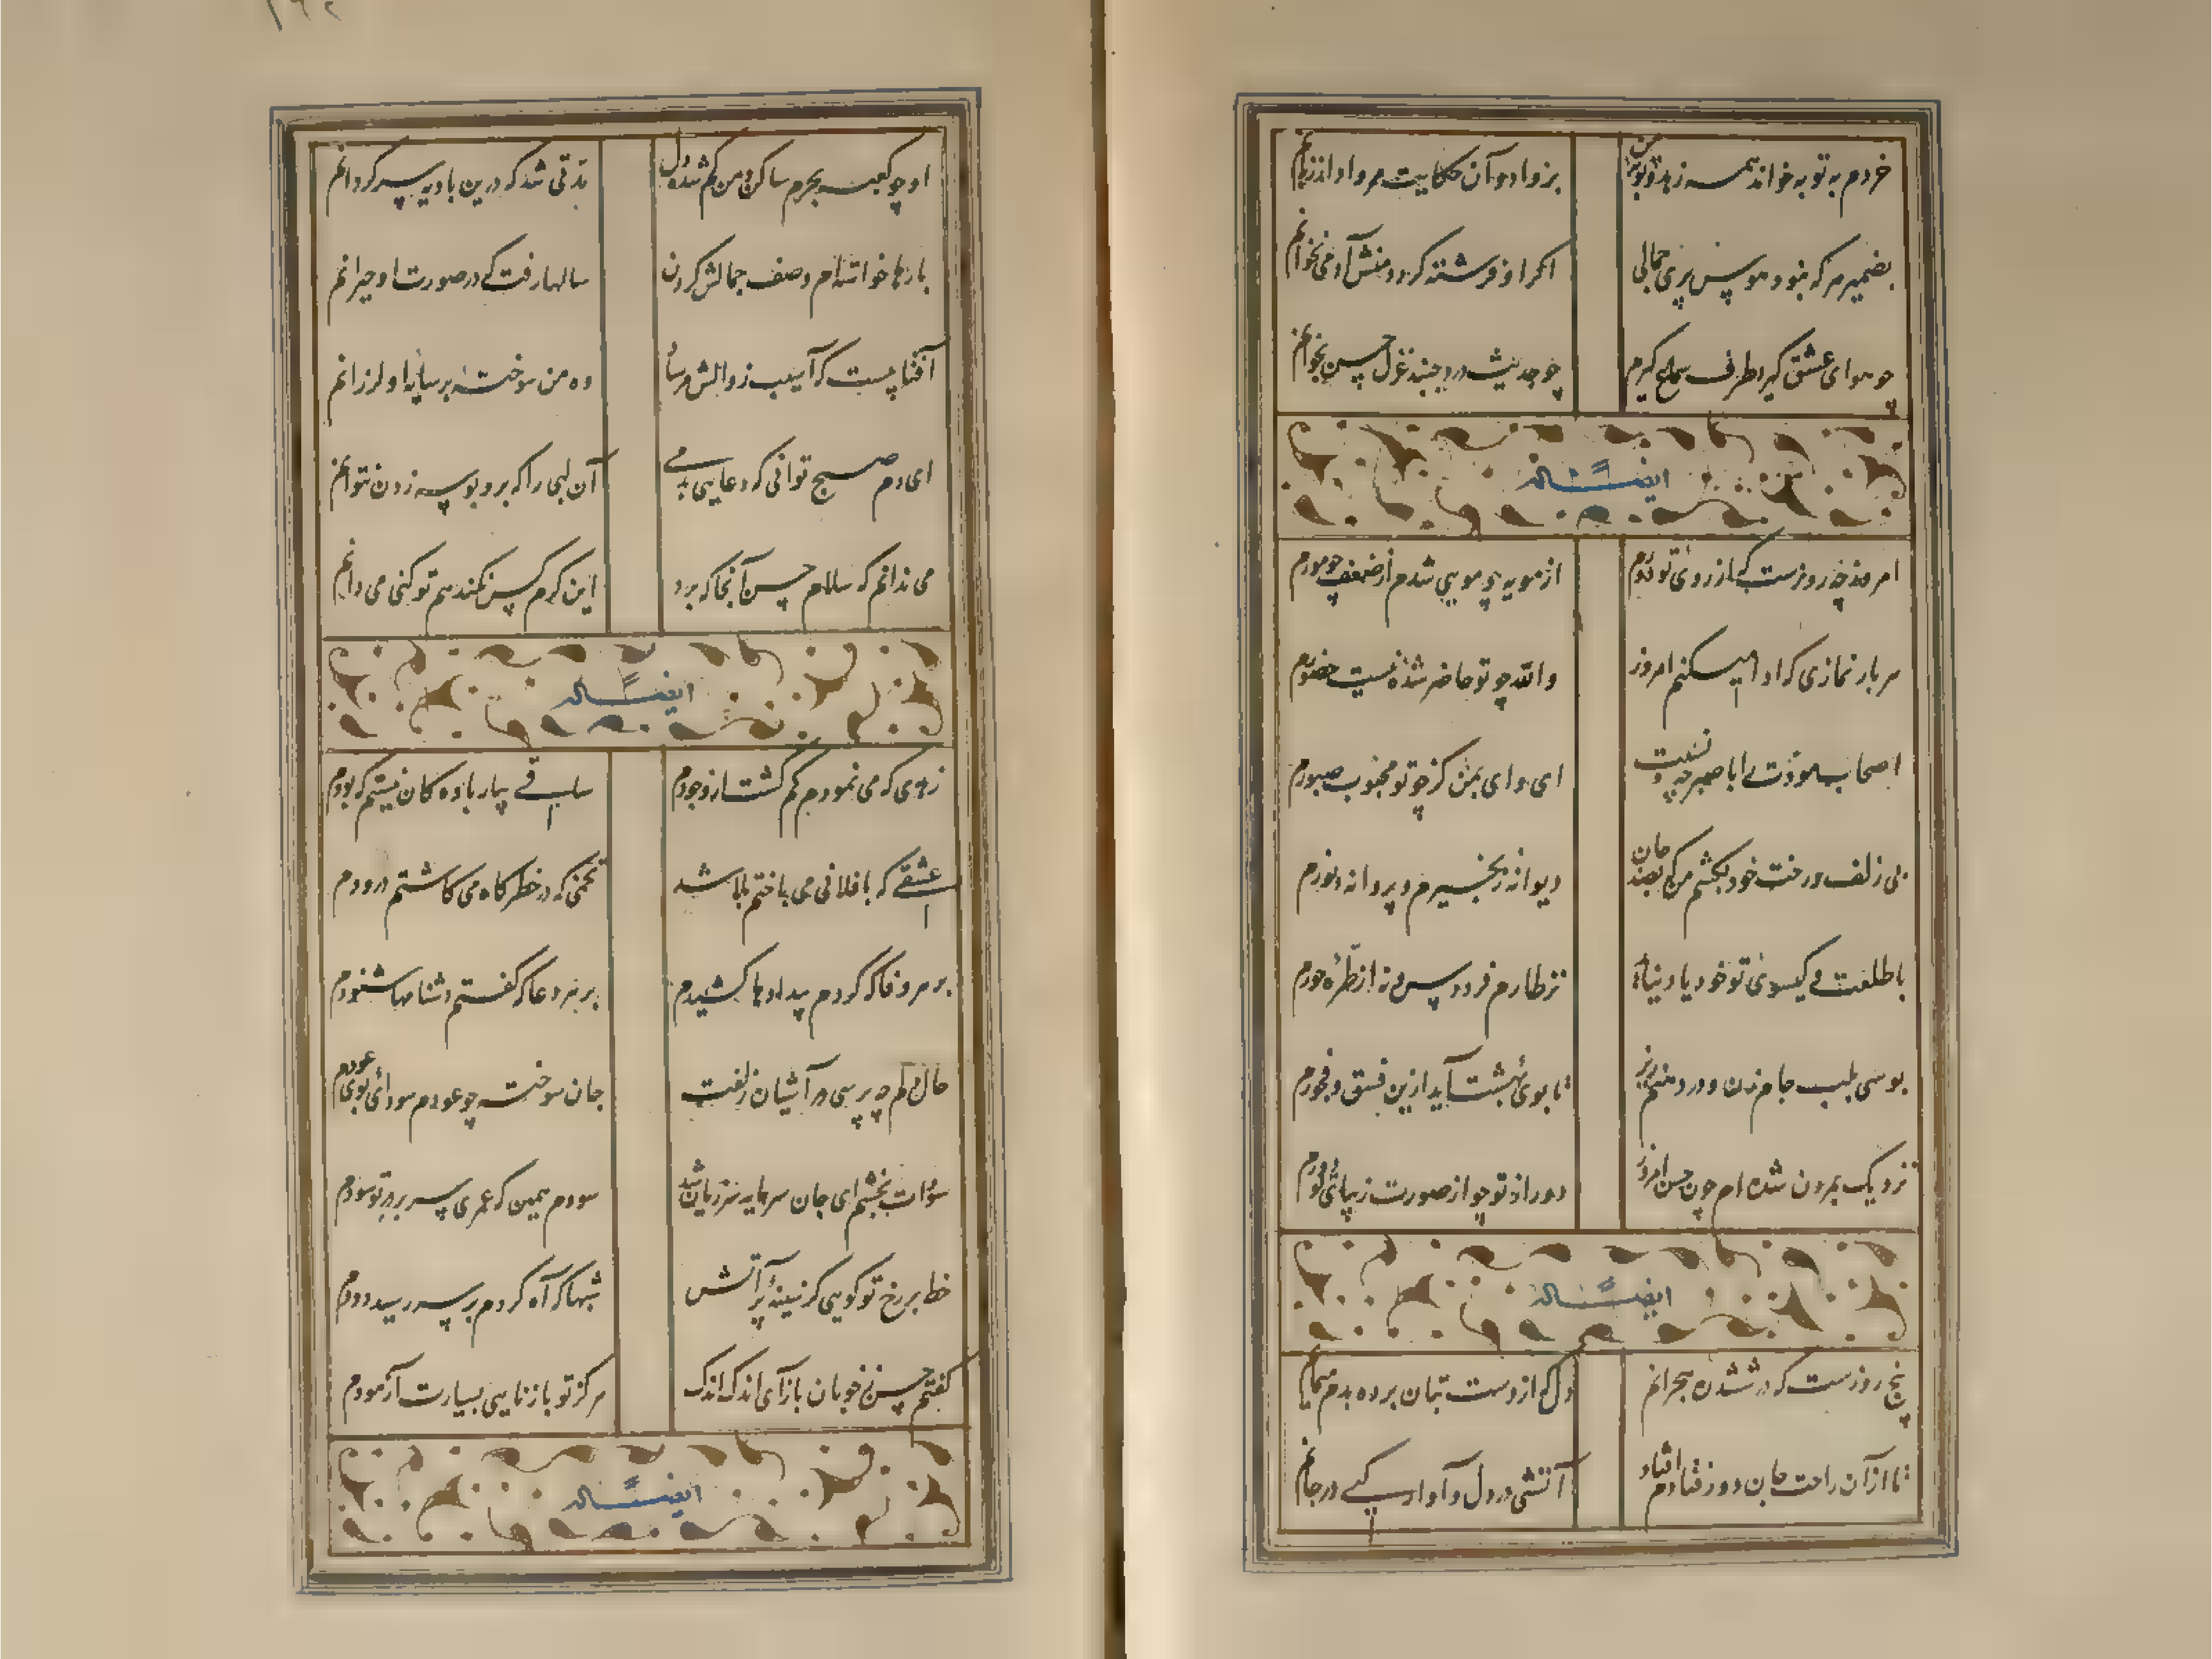 خردم به توبه خواند همه زهد و توبه من
بزواد و آن حکایت مرواد از زبانم
بضمیرم که نبود هوس پری جمالی
اگر او فرشته گردد منش آدمی نخوانم
چو هوای عشق گیرد طرف سماع گیرم
چو حدیث درد چند غزل حسن بخوانم
ایضاً له
امروز چه روزست که از روی تو دورم
از مویه چو مویی شدم از ضعف چو مورم
هر بار نمازی که ادا میکنم امروز
والله چو تو حاضر شده نیست حضورم
اصحاب مودت را با صبر چه نسبت
ای وای بمن کز چو تو محبوب صبورم
بی زلف و رخت خود بکشم من که بصد جان
دیوانه زنجیرم و پروانه نورم
با طلعت و گیسوی تو خود یاد نیاید
نز طارم فردوس و نه از طره حورم
بوسی بلب جام زن و در دهنم ریز
تا بوی بهشت آید ازین فسق و فجورم
نزدیک بمردن شده ام چون حسن امروز
دور از تو چو از صورت زیبای تو دورم
ایضاً له
پنج روزست که در ششدره هجرانم
دل که از دست بتان برده بدم
تا از آن راحت جان دور فتادم افتاد
آتشی در دل و آوارگیی در جانم
او چو کعبه بحرم ساکن و من گم شده دل
مدتی شد که درین بادیه سرگردانم
بارها خواسته ام وصف جمالش کردن
سالها رفت که در صورت او حیرانم
آفتابیست که آسیب زوالش مرسا
وه من سوخته بر سایه او لرزانم
ای دم صبح توانی که دعایی ببری
آن لبی را که برو بوسه زدن نتوانم
می ندانم که سلام حسن آنجا که برد
این کرم کس نکند هم تو کنی می دانم
ایضاً له
زهدی که می نمودم گم گشت از وجودم
ساقی بیار باده کان نیستم که بودم
عشقی که با فلانی می باختم بلا شد
تخمی که در خطرگاه می کاشتم درودم
بر هر وفا که کردم بیدادها کشیدم
بر هر دعا که گفتم دشنامها شنودم
حال دلم چه پرسی در آشیان زلفت
جان سوخته چو عودم سودای بوی عودم
سودات بخشم ای جان سرمایه سر زیان شد
سودم همین که عمری سر بر در تو سودم
خط بر رخ تو گویی کز سینه پر آتش
شبها که آه کردم بر سر رسید دودم
گفتم حسن ز خوبان بازآی اندک اندک
هرگز تو باز نایی بسیارت آزمودم
ایضاً له